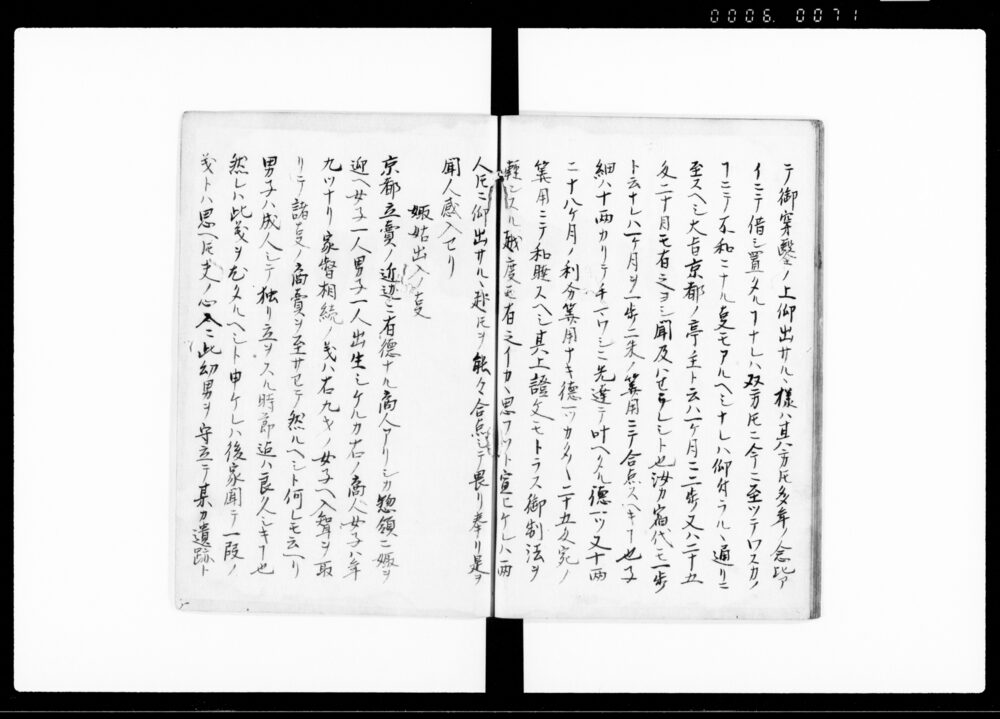 0006.0071
テ御穿鑿ノ上仰出サルヽ様ハ其方𪜈多年ノ念比ア
イニテ借シ置タルフナレハ双方𪜈ニ今ニ至ツテワスカノ
フニテ不和ニナル叓モアルヘシナレハ仰付ラルヽ通リニ
至スヘシ大旨京都ノ亭主ト云ハ一ケ月ニ二歩又ハ二十五
匁二十目モ有之ヨシ聞及ハセラレシト也汝カ宿代モ一歩
ト云ナレハ一ケ月ヲ一歩二朱ノ算用ニテ合点スヘキフ也子
細ハ十両カリテ手マワシニ先達テ叶ヘタル德一ツ又十両
二十八ケ月ノ利分算用ナキ德一ツカタ〱二十五匁宛ノ
算用ニテ和睦スヘシ其上證文モトラス御制法ヲ
輕シスル越度モ有之イカヽ思フソト宣ヒケレハ両
人𪜈ニ仰出サルヽ趣𪜈ヲ能々合点シテ畏リ奉リ是ヲ
聞人感入セリ
娵姑出入ノ叓
京都立賣ノ近辺ニ有德ナル商人アリシカ惣領ニ娵ヲ
迎ヘ女子一人男子一人出生シケルカ右ノ商人女子ハ年
九ツナリ家督相続ノ義ハ右九才ノ女子ヘ入聟ヲ取
リテ諸叓ノ商賣ヲ至サセテ然ルヘシト何レモ云ヘリ
男子ハ成人シテ独リ立ヲスル時節迠ハ良久シキフ也
然レハ此義ヲ尤タルヘシト申ケレハ後家聞テ一段ノ
義トハ思ヘ𪜈夫ノ心入ニ此幼男ヲ守立テ某カ遺跡ト